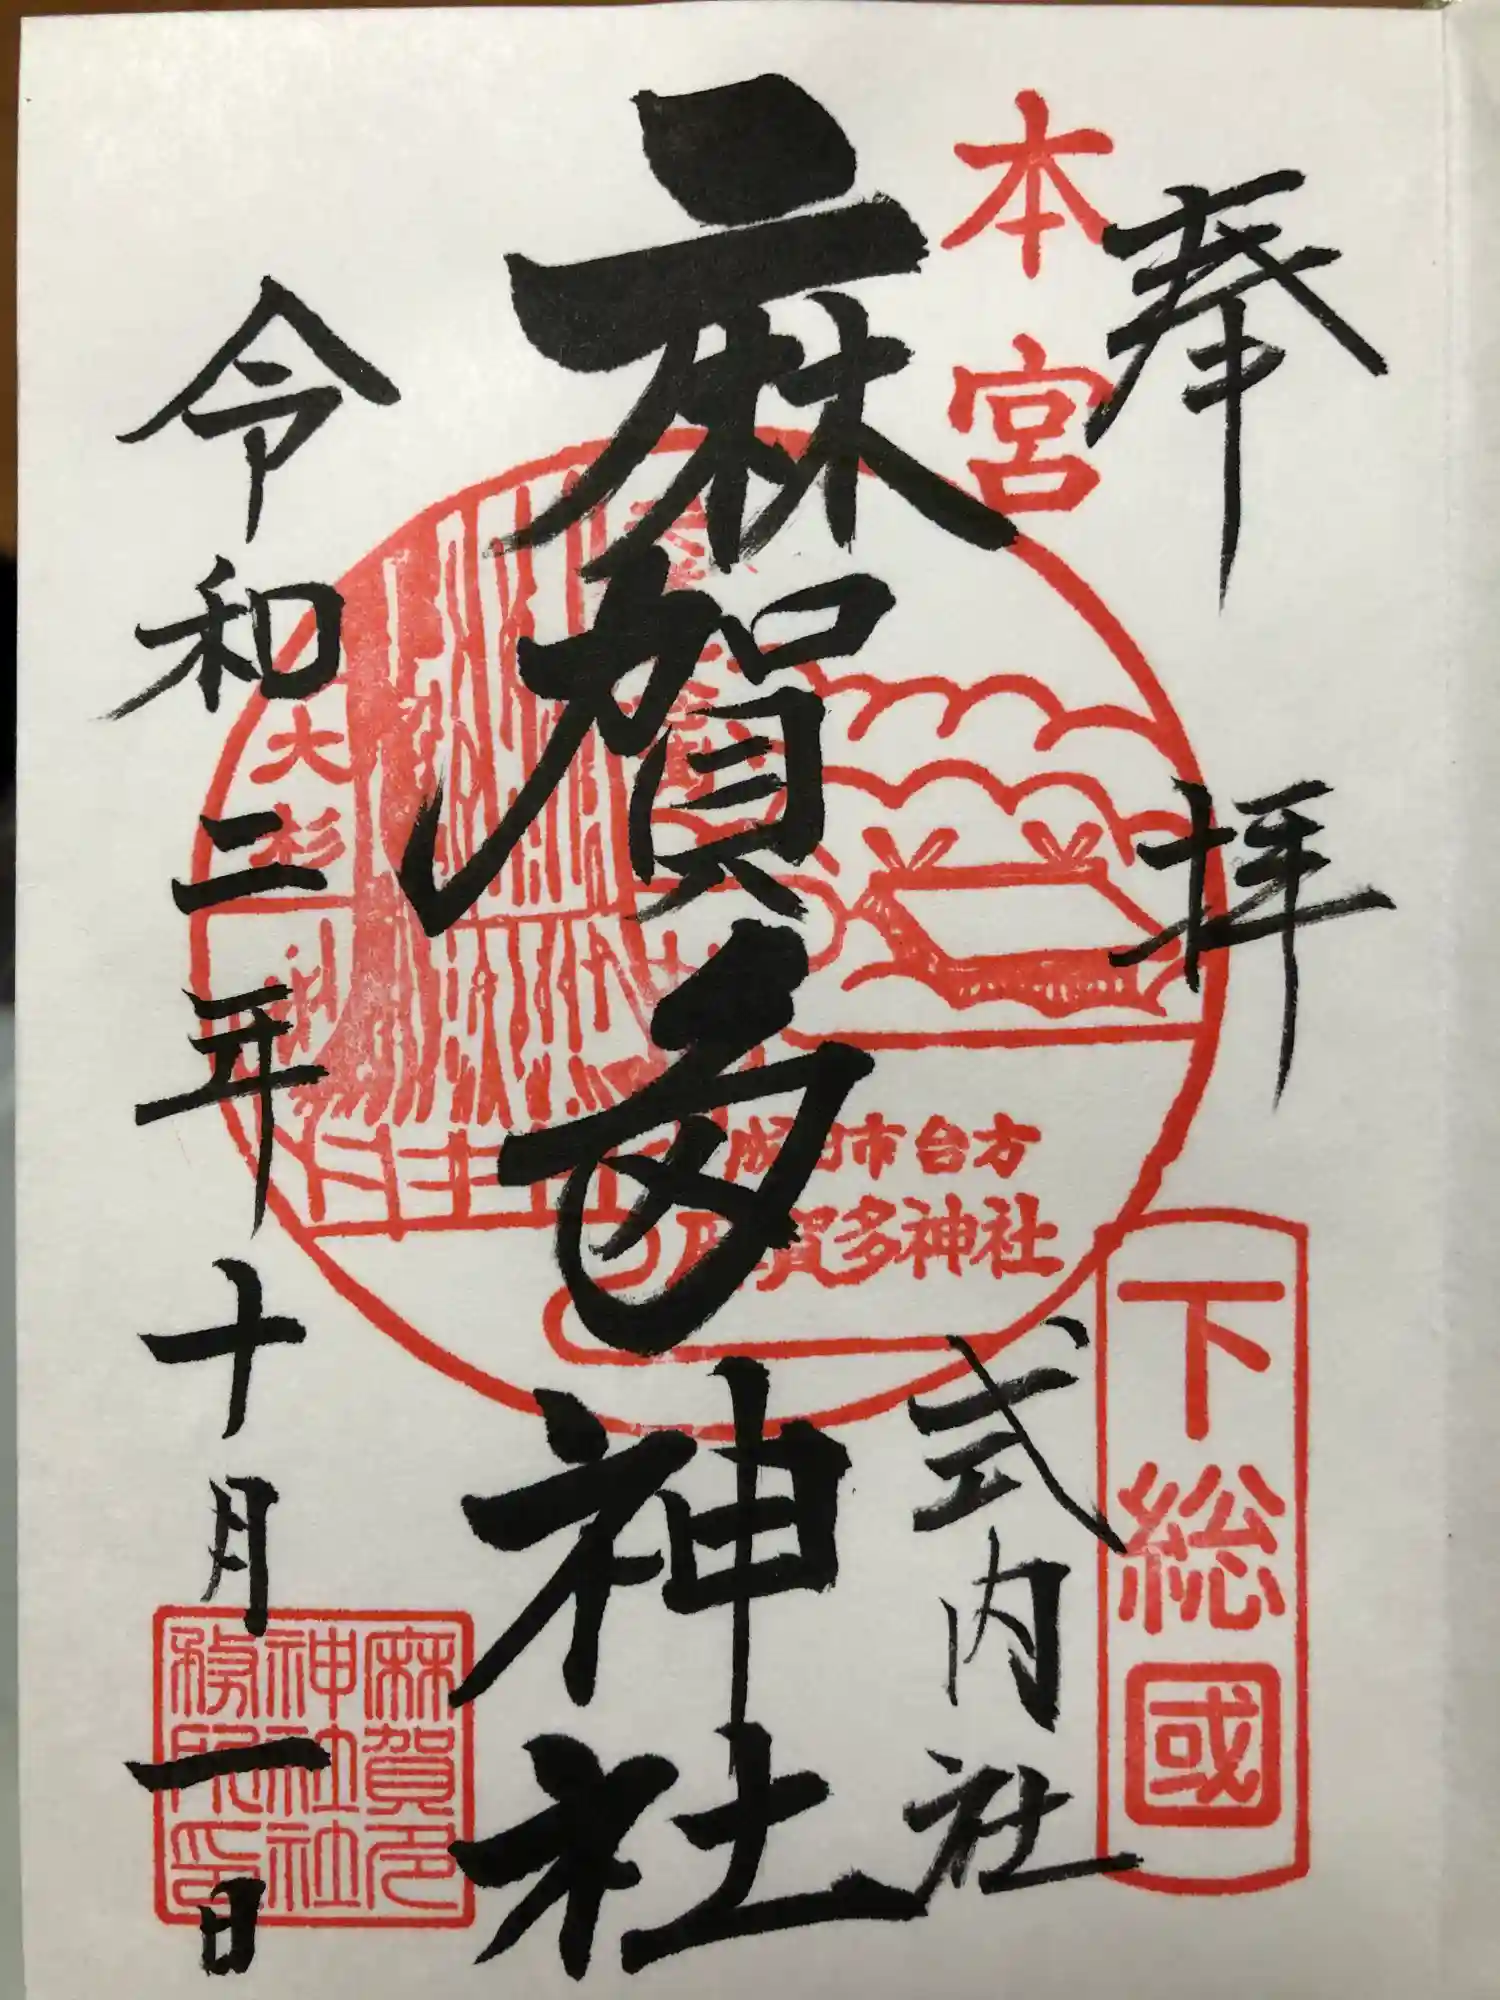 奉拝
本宮
下総國
式内社
麻賀多神社
成田市台方
麻賀多神社
大杉
令和二年十月一日
麻賀多
神社社
務所印